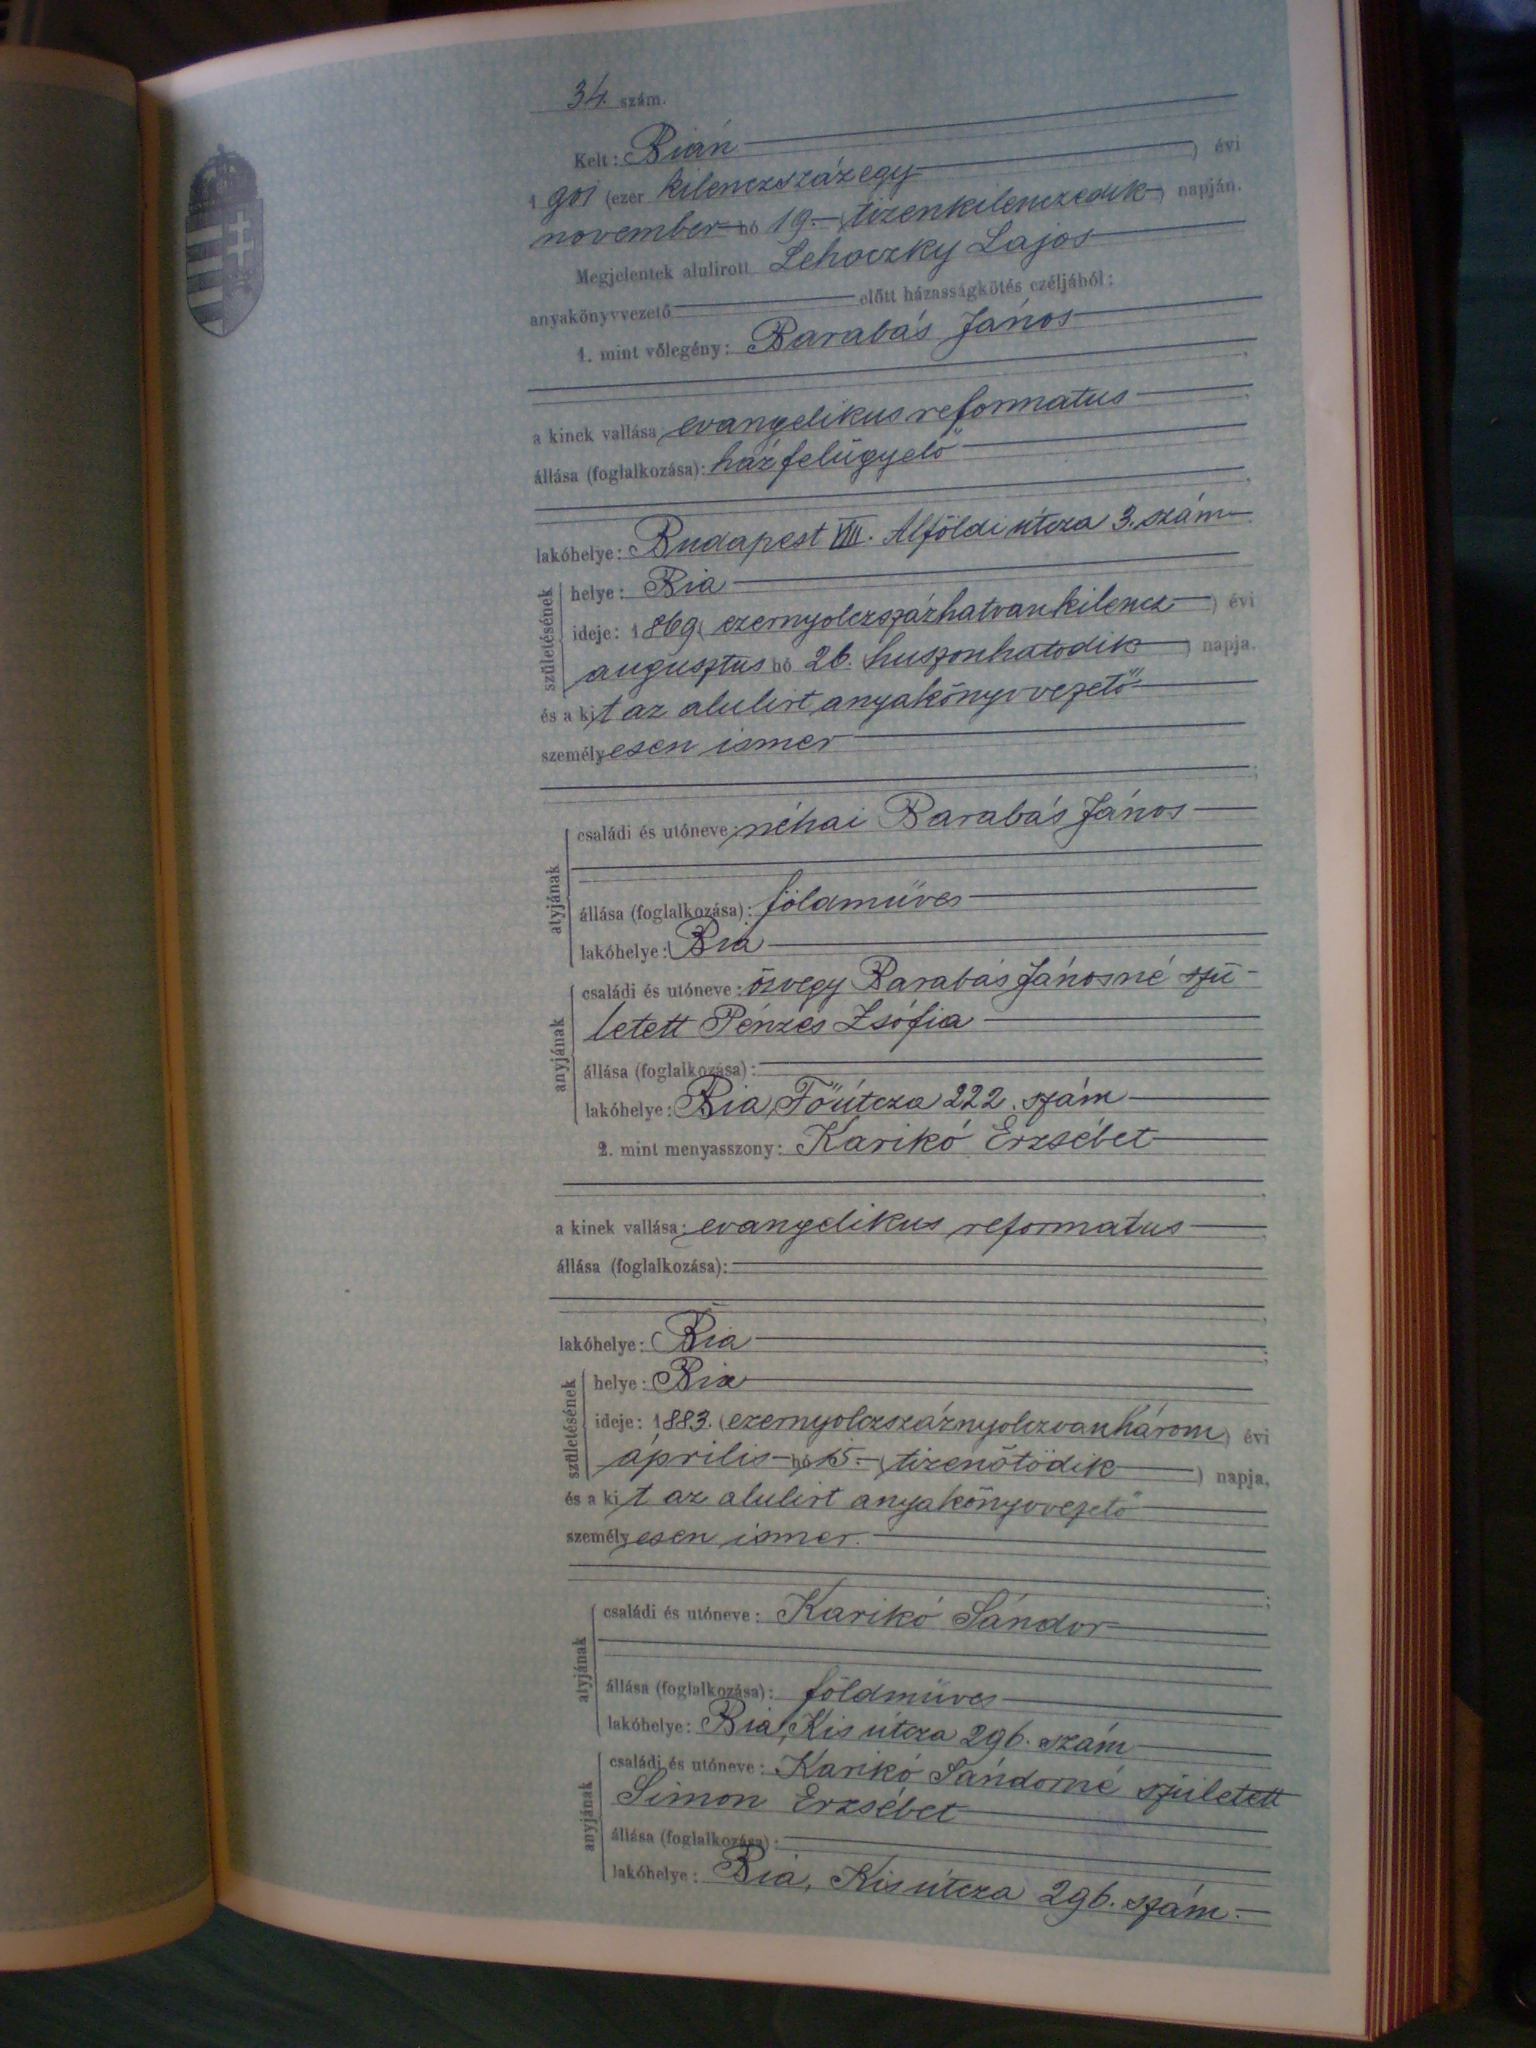 34. szám.
Kelt: Bián
1901 (ezer kilenczszázegy) évi
november hó 19. (tizenkilenczedik) napján.
Megjelentek alulirott Lehoczky Lajos
anyakönyvvezető előtt házasságkötés czéljából:
1. mint vőlegény: Barabás János
a kinek vallása evangelikus reformatus
állása (foglalkozása): házfelügyelő
lakóhelye: Budapest VIII. Alföldi útcza 3. szám
születésének helye: Bia
ideje: 1869 (ezernyolczszázhatvankilencz) évi
augusztus hó 26. (huszonhatodik) napja.
és a kit az alulirt anyakönyvvezető
személyesen ismer
atyjának családi és utóneve: néhai Barabás János
állása (foglalkozása): földmüves
lakóhelye: Bia
anyjának családi és utóneve: özvegy Barabás Jánosné szü-
letett Pénzes Zsófia
állása (foglalkozása):
lakóhelye: Bia, Főútcza 222. szám
2. mint menyasszony: Karikó Erzsébet
a kinek vallása: evangelikus reformatus
állása (foglalkozása):
lakóhelye: Bia
születésének helye: Bia
ideje: 1883. (ezernyolczszáznyolczvanhárom) évi
április hó 15. (tizenötödik) napja,
és a kit az alulirt anyakönyvvezető
személyesen ismer.
atyjának családi és utóneve: Karikó Sándor
állása (foglalkozása): földmüves
lakóhelye: Bia, Kis útcza 296. szám
anyjának családi és utóneve: Karikó Sándorné született
Simon Erzsébet
állása (foglalkozása):
lakóhelye: Bia, Kis útcza 296. szám.